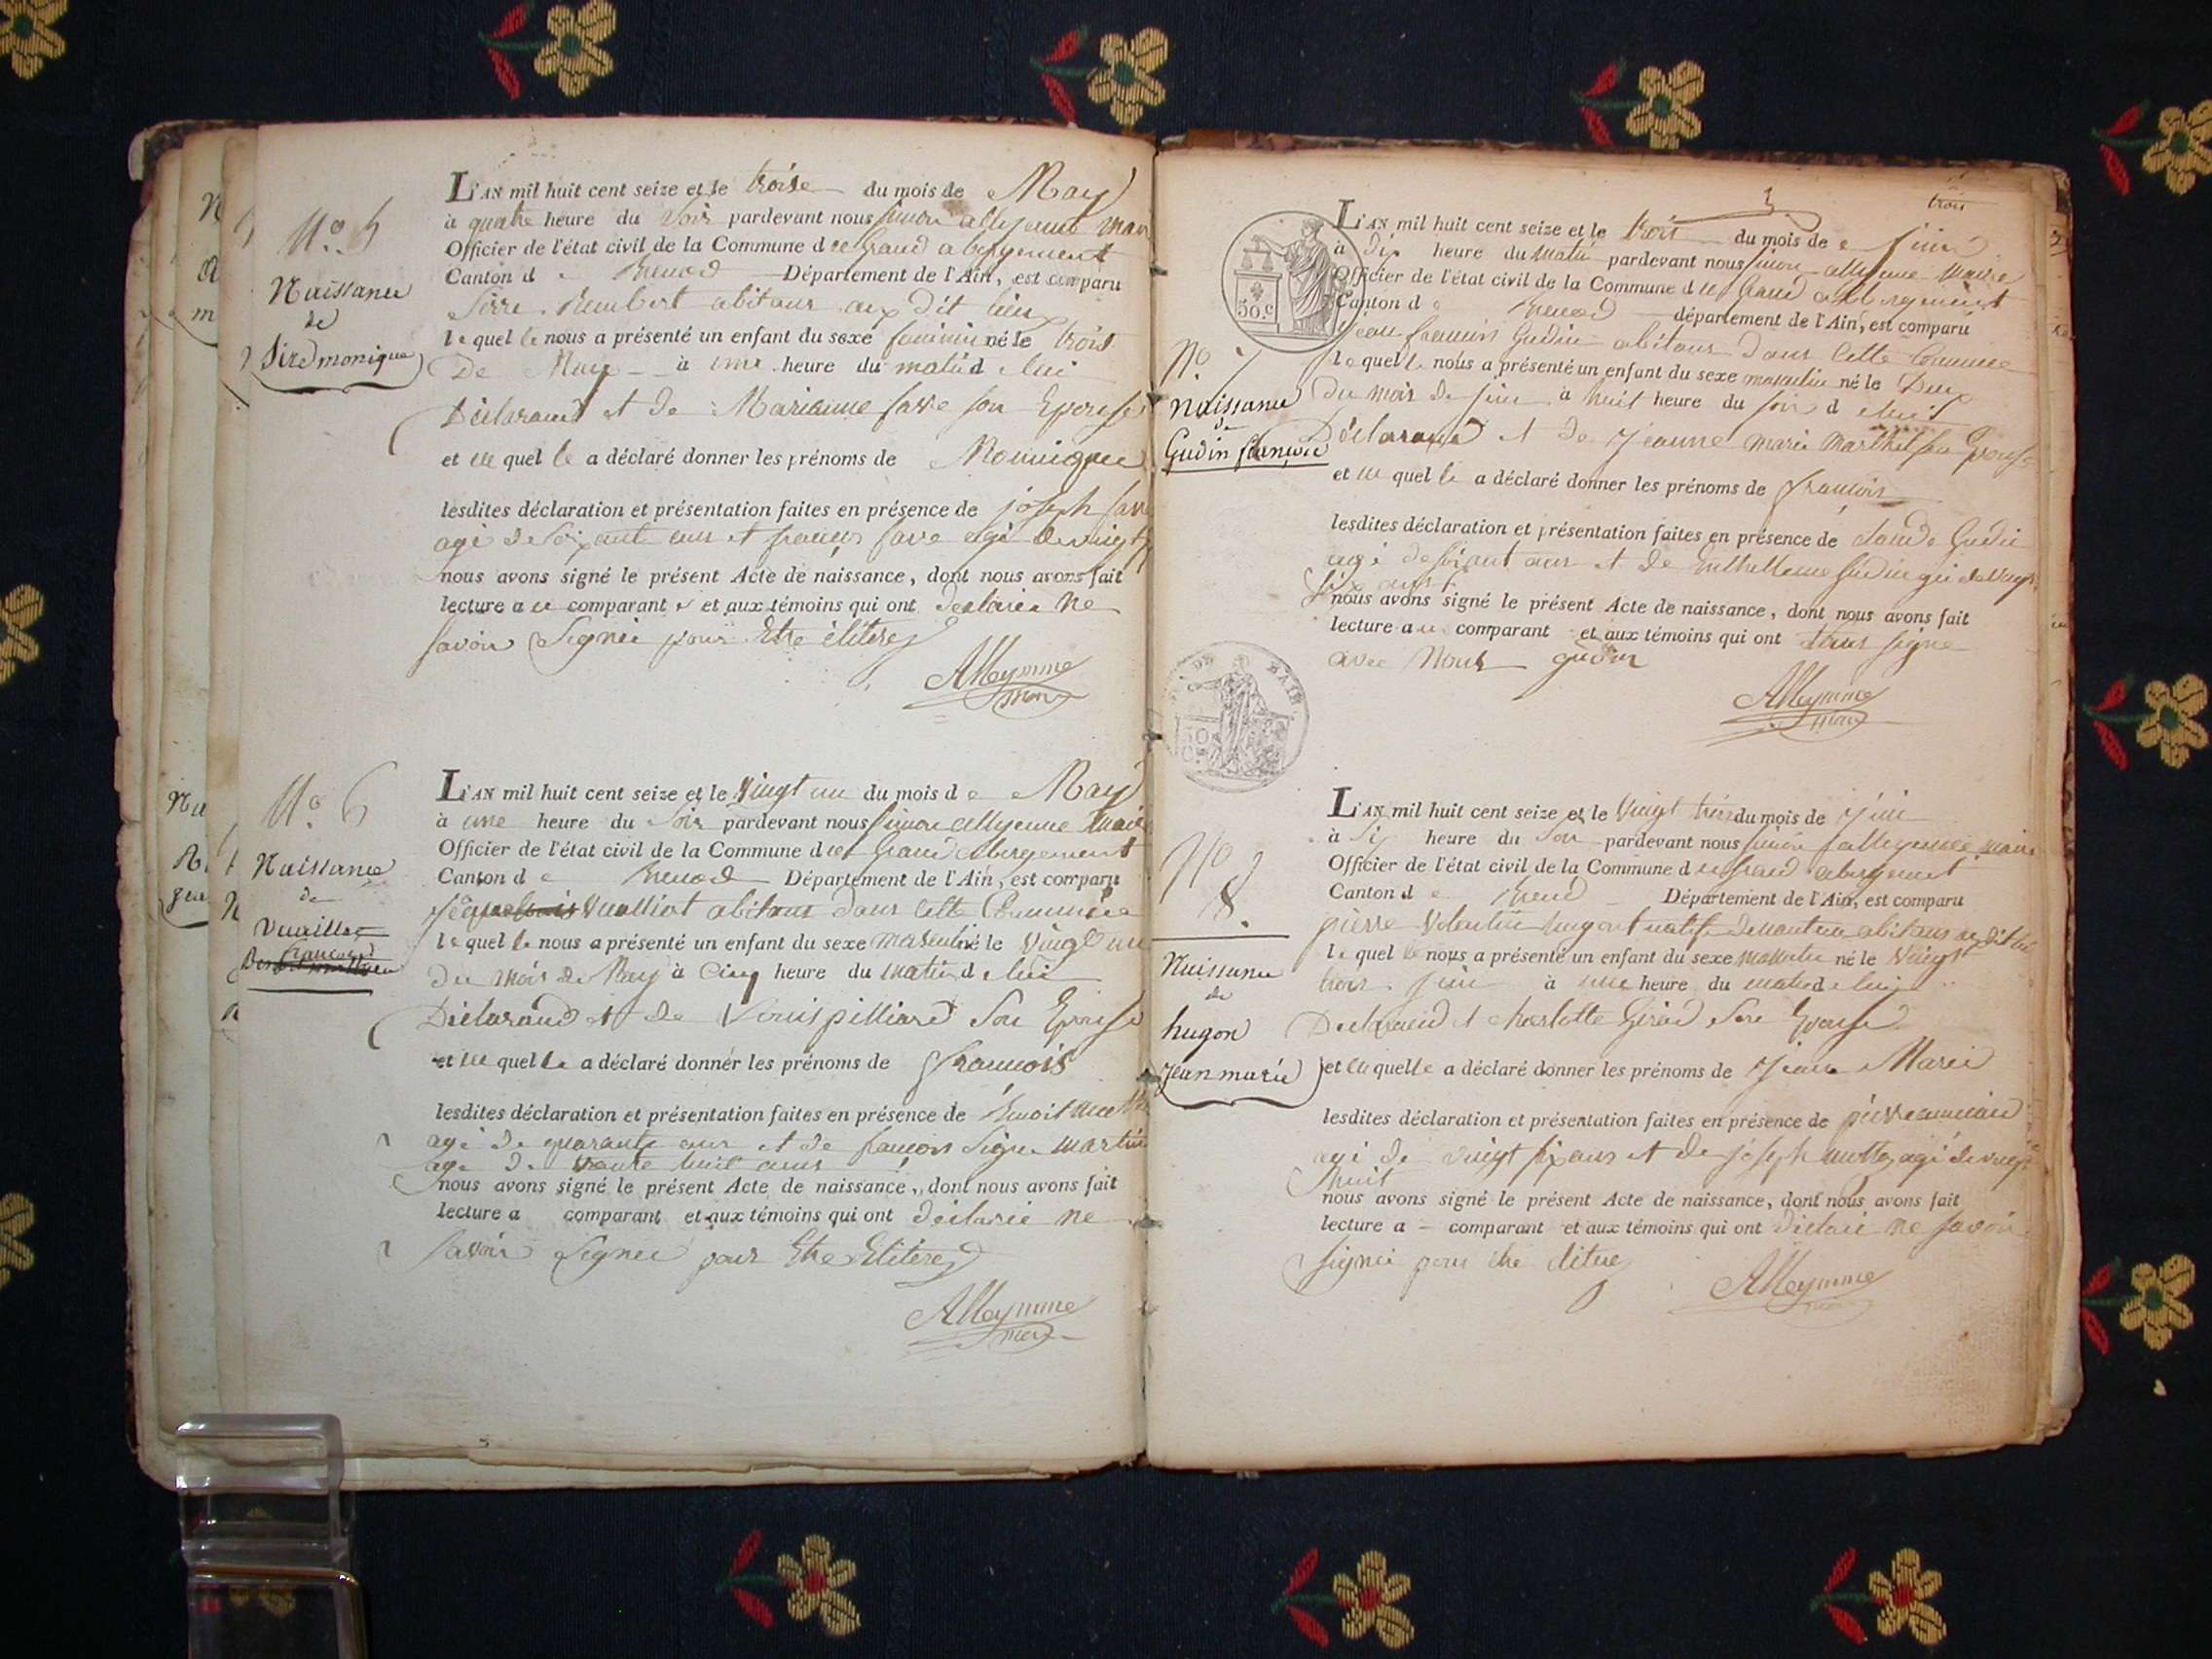 No 5
Naissance
de
Sire monique
L'AN mil huit cent seize et le troise du mois de May
à quatre heure du Soir pardevant nous Simon alleyenne maire
Officier de l'état civil de la Commune de Grand abergement
Canton de Brenod Département de l'Ain, est comparu
humbert abitant aux dit lieux
lequel le nous a présenté un enfant du sexe feminin né le trois
De May à une heure du matin d lui
Déclarand et de Marianne favre son Epouse
et le quel le a déclaré donner les prénoms de Monique
lesdites déclaration et présentation faites en présence de joseph
agé de Soixante ans et françois favre agé de vingt
nous avons signé le présent Acte de naissance, dont nous avons fait
lecture a comparant et aux témoins qui ont declaree ne
Savoir Signée pour Etre
Alleymme
maire
No 6
Naissance
de
Vuaillat
francois
L'AN mil huit cent seize et le Vingt un du mois de May
à une heure du Soir pardevant nous Simon alleyenne Maire
Officier de l'état civil de la Commune de Grand abergement
Canton de Brenod Département de l'Ain, est comparu
abitant dans Cette Commune
lequel le nous a présenté un enfant du sexe masculin né le Vingt un
du mois de May à Cinq heure du matin d lui
Déclarand et de Louis pilliard Son Epouse
et le quel le a déclaré donner les prénoms de francois
lesdites déclaration et présentation faites en présence de Benoit
agé de quarante ans et de francois Martin
age De trante huit ans
nous avons signé le présent Acte de naissance, dont nous avons fait
lecture a comparant et aux témoins qui ont déclarée ne
Savoir Signée pour Etre
Alleymme
maire
3
trois
50.c
No 7
Naissance
de
Gudin françois
L'AN mil huit cent seize et le trois du mois de juin
à dix heure du Matin pardevant nous Simon alleyenne Maire
Officier de l'état civil de la Commune de Grand abergement
Canton de Brenod département de l'Ain, est comparu
jean francois Gudin abitant dans Cette Commune
lequel le nous a présenté un enfant du sexe masculin né le Deux
du mois de juin à huit heure du soir d lui
Déclarand et de jeanne marie son Epouse
et le quel le a déclaré donner les prénoms de francois
lesdites déclaration et présentation faites en présence de claude Gudin
agé de ans et de Gudin de vingt
Six ans
nous avons signé le présent Acte de naissance, dont nous avons fait
lecture a comparant et aux témoins qui ont signe
avec Nous gudin
Alleymme
maire
No 8.
Naissance
de
hugon
jean marie
L'AN mil huit cent seize et le Vingt trois du mois de juin
à Six heure du Soir pardevant nous Simon alleyenne maire
Officier de l'état civil de la Commune de Grand abergement
Canton de Département de l'Ain, est comparu
pierre Valentin natif de abitant au dit
lequel le nous a présenté un enfant du sexe masculin né le Vingt
trois juin à une heure du matin de lui
Declarand et charlotte Girod Son Epouse
et le quelle a déclaré donner les prénoms de jean Marie
lesdites déclaration et présentation faites en présence de pierre
agé de vingt six ans et de joseph agé de vingt
huit
nous avons signé le présent Acte de naissance, dont nous avons fait
lecture a comparant et aux témoins qui ont déclaré ne Savoir
Signée pour Etre
Alleymme